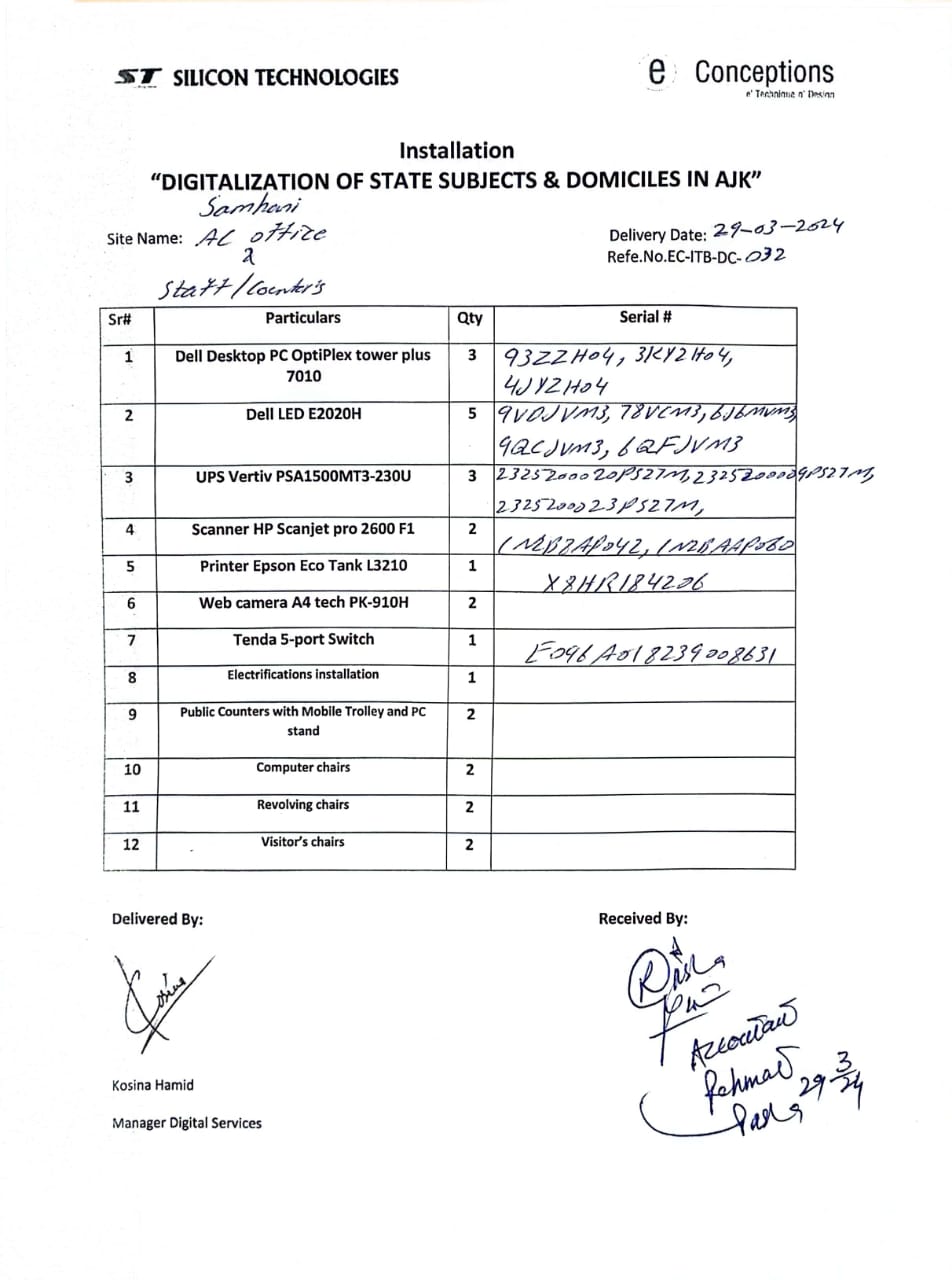 ST SILICON TECHNOLOGIES
e Conceptions
e' Technique n' Design
Installation
“DIGITALIZATION OF STATE SUBJECTS & DOMICILES IN AJK”
Samhani
Site Name: AC office
&
Staff/Counters
Delivery Date: 29-03-2024
Refe.No.EC-ITB-DC-032
Sr# Particulars Qty Serial #
1 Dell Desktop PC OptiPlex tower plus 7010 3 93ZZH04, 3KYZH04,
4JYZH04
2 Dell LED E2020H 5 9VDJVM3, 78VCM3, 6J6MVM3
9QCJVM3, 6QFJVM3
3 UPS Vertiv PSA1500MT3-230U 3 2325200020PS27M, 2325200009PS27M,
2325200023PS27M,
4 Scanner HP Scanjet pro 2600 F1 2
5 Printer Epson Eco Tank L3210 1 X8HR184206
6 Web camera A4 tech PK-910H 2
7 Tenda 5-port Switch 1 E096A018239008631
8 Electrifications installation 1
9 Public Counters with Mobile Trolley and PC stand 2
10 Computer chairs 2
11 Revolving chairs 2
12 Visitor's chairs 2
Delivered By:
Kosina
Kosina Hamid
Manager Digital Services
Received By:
Accountant
Rehmat
29-3/24